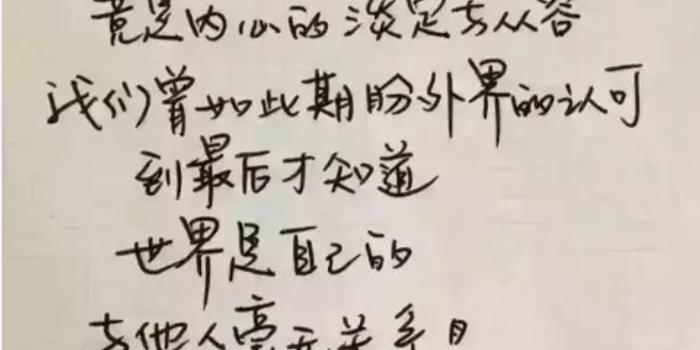 竟是内心的淡定与从容
我们曾如此期盼外界的认可
到最后才知道
世界是自己的
与他人毫无关系